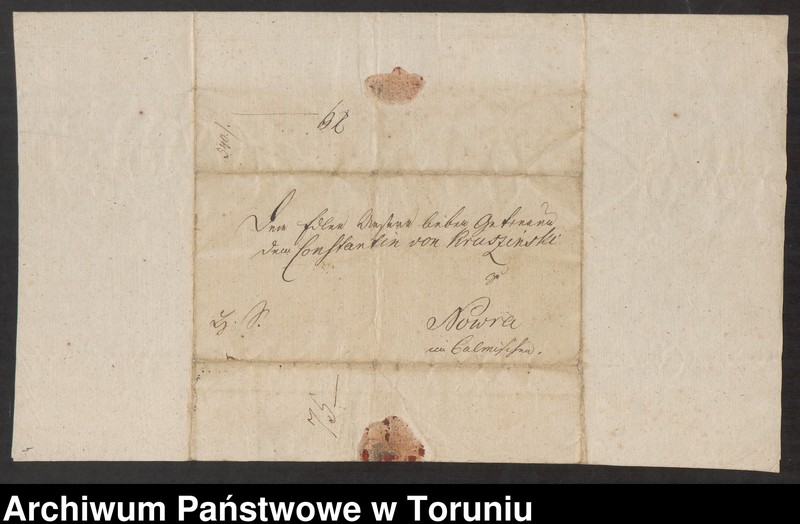 62
Dem Edlen Unsern lieben Getreuen
dem Constantin von Kruszinski
zu
Nowra
im Culmischen.
H. S.
75
Archiwum Państwowe w Toruniu